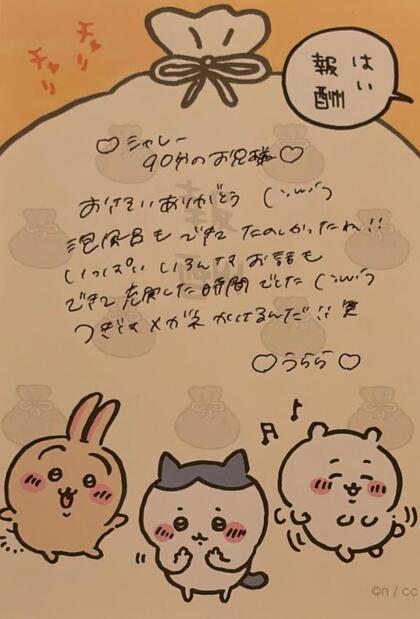 チャリ
チャリ
はい
報酬
♡シャレー
90分のお兄様♡
おさそいありがとう (´ω`)
泡風呂もできてたのしかったね!!
いっぱいいろんなお話も
できて充実した時間でした(´ω`)
つぎもメガネかけるんだ!!笑
♡うらら♡
報酬
©n / cc